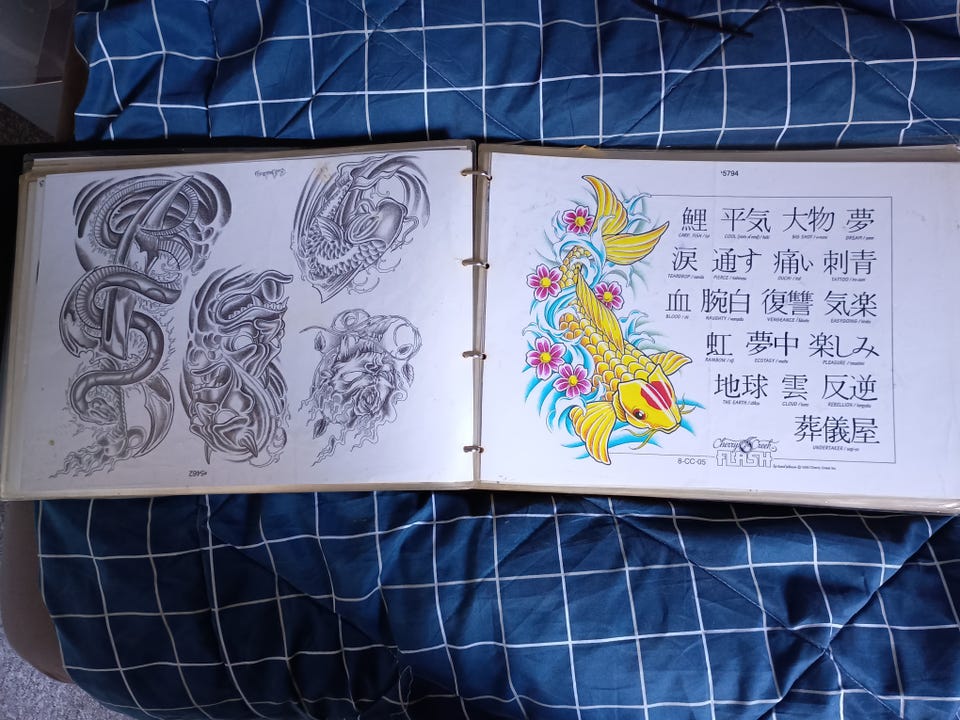 *5794
鯉 平気 大物 夢
CARP, FISH / koi COOL (state of mind) / heiki BIG SHOT / DREAM / yume
涙 通す 痛い 刺青
TEARDROP / namida PIERCE / OUCH! / itai TATTOO /
血 腕白 復讐 気楽
BLOOD / chi NAUGHTY / wanpaku VENGEANCE / EASYGOING / kiraku
虹 夢中 楽しみ
RAINBOW / niji ECSTASY / PLEASURE /
地球 雲 反逆
THE EARTH / CLOUD / kumo REBELLION /
葬儀屋
UNDERTAKER /
Cherry Creek
FLASH
8-CC-05